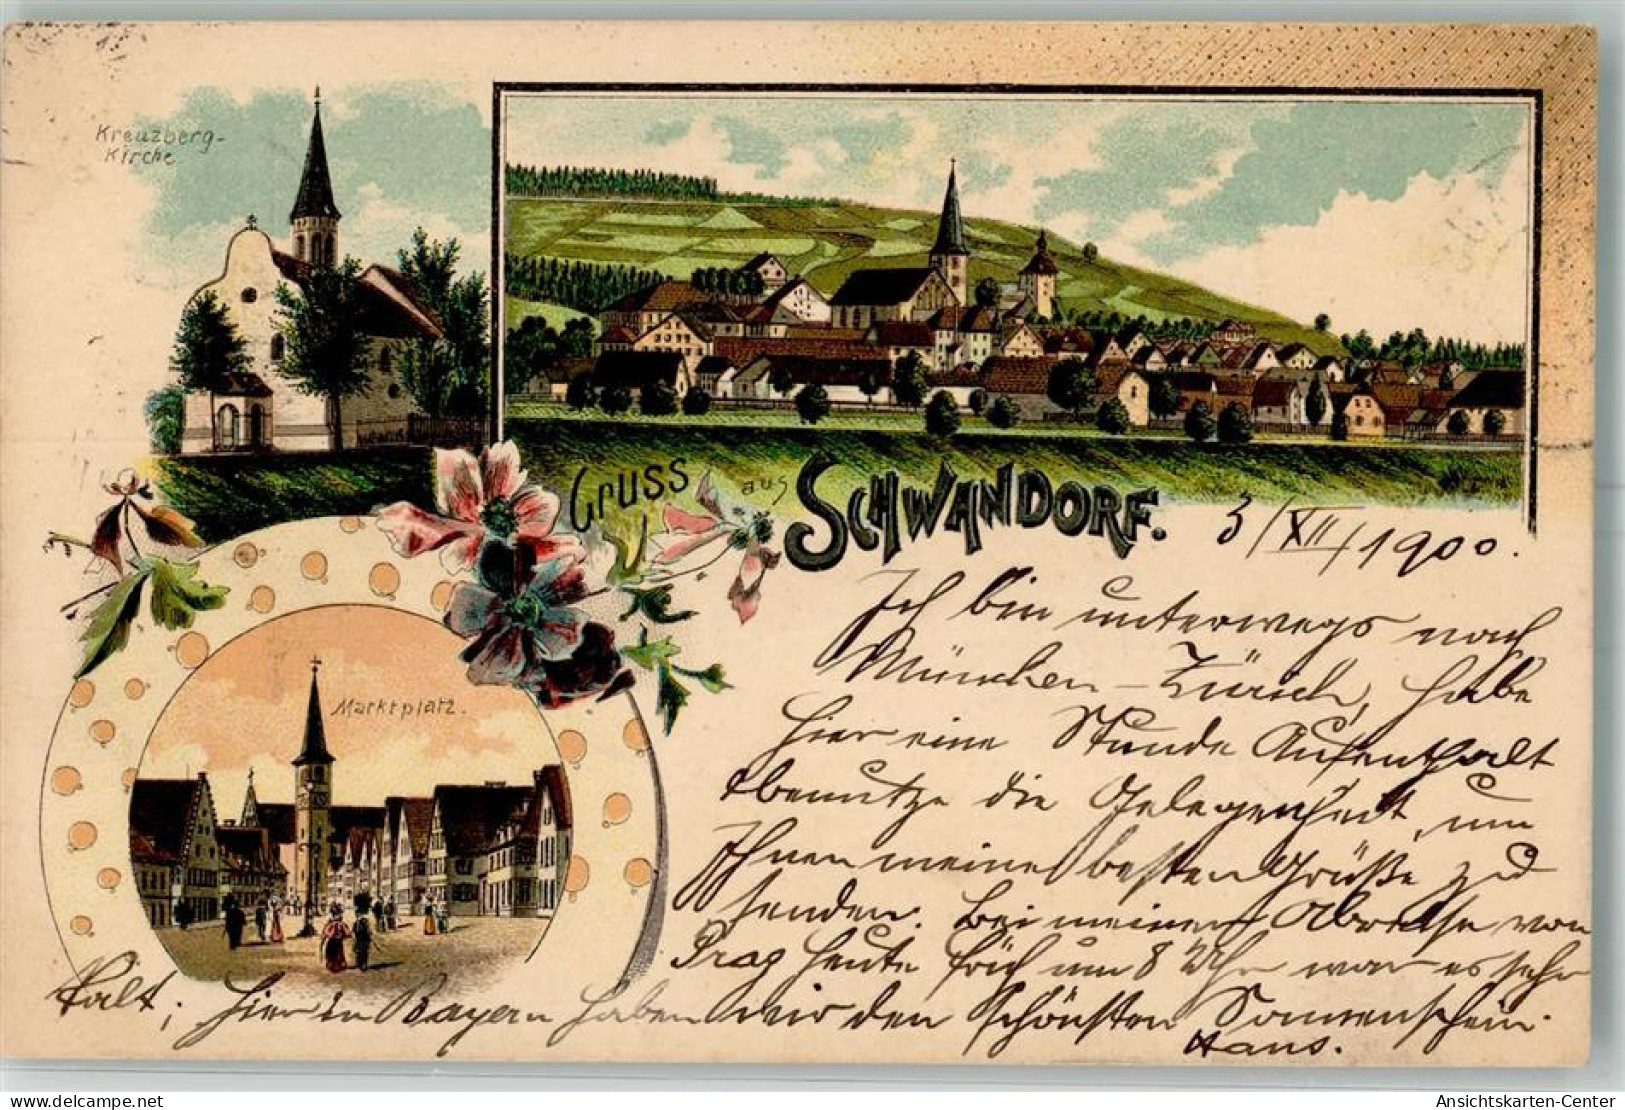 Kreuzberg-
Kirche
Gruss aus SCHWANDORF.
Marktplatz.
3/XII/1900.
Ich bin unterwegs nach
München-Zürich, habe
hier eine Stunde Aufenthalt
& benutze die Gelegenheit, um
Ihnen meine besten Grüße zu
senden. Bei meiner Abreise von
Prag heute früh um 8 Uhr war es sehr
kalt; hier in Bayern haben wir den schönsten Sonnenschein.
Hans.
delcampe.net
Ansichtskarten-Center